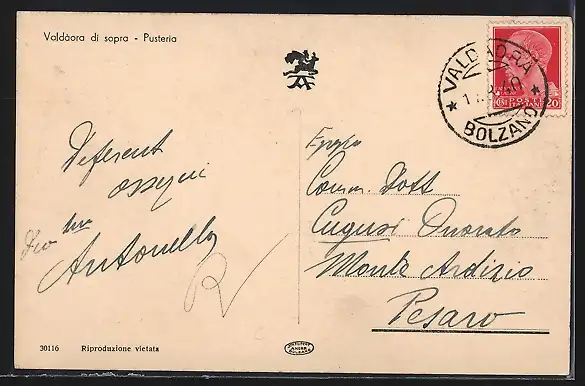 Valdàora di sopra - Pusteria
VALDAORA
BOLZANO
POSTE ITALIANE
20
Deferenti
ossequi
Antonello
R
Comm. Dott
Cugusi Onorato
Monte Ardizio
Pesaro
30116 Riproduzione vietata